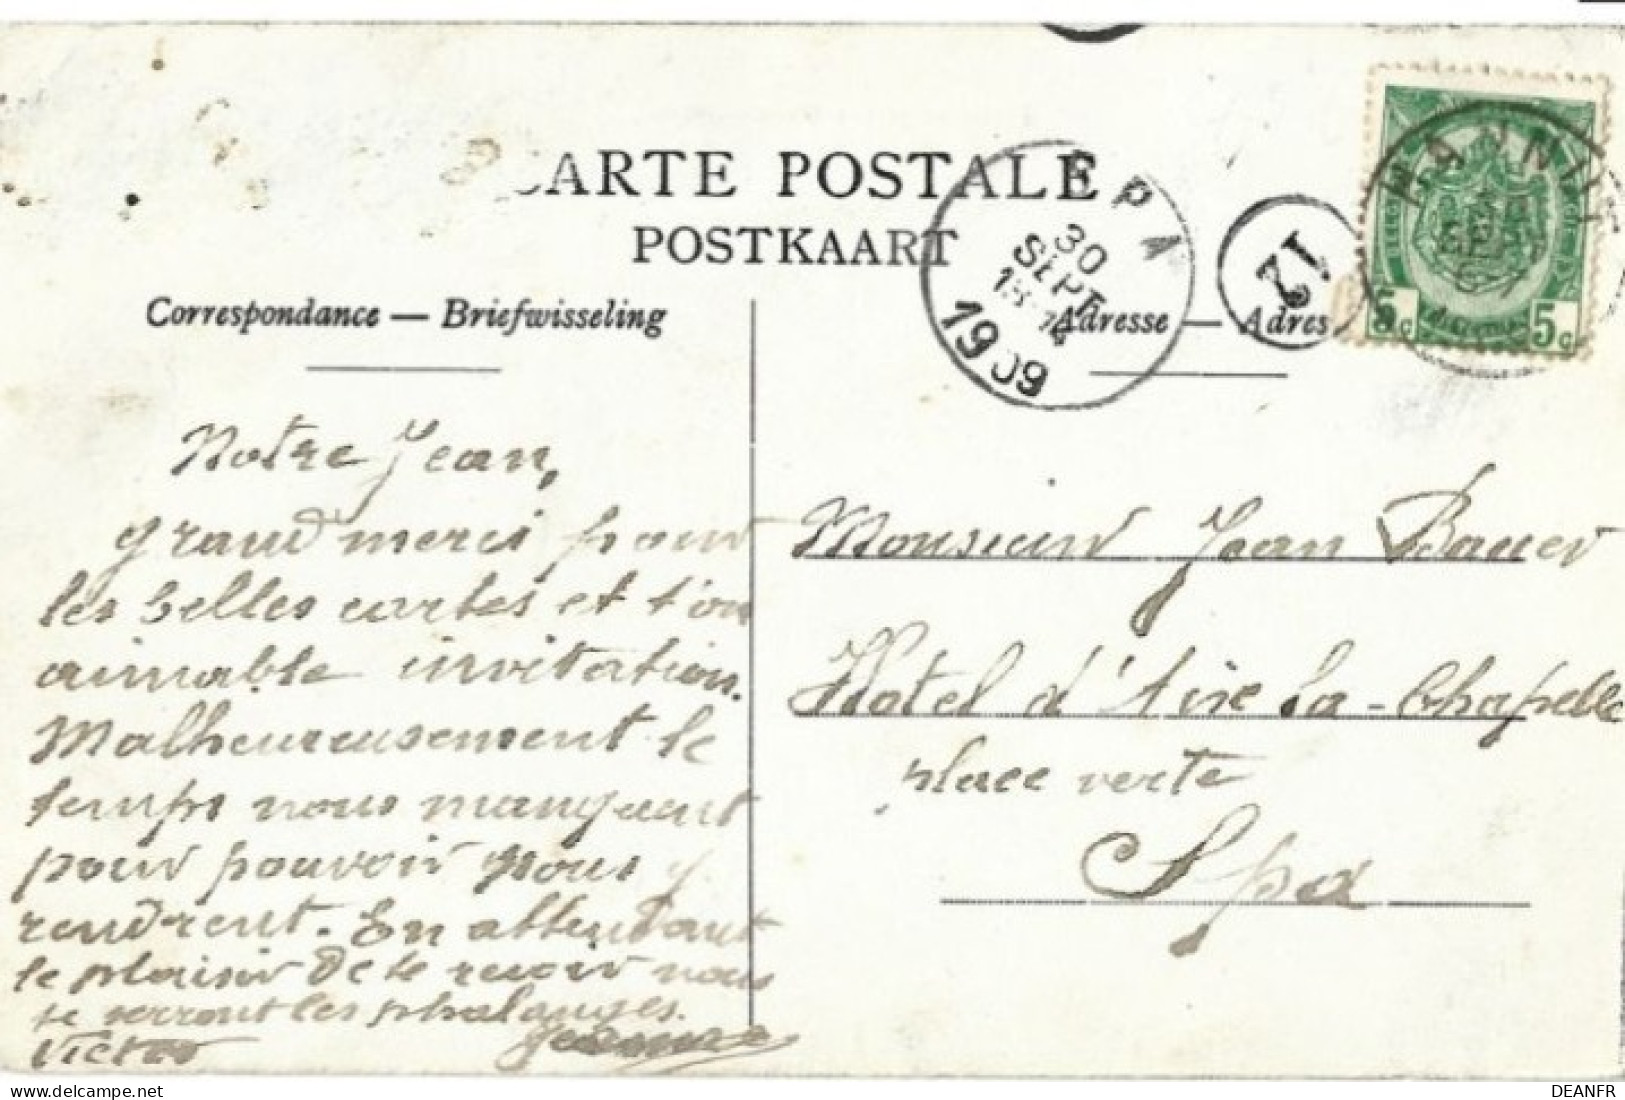 CARTE POSTALE
POSTKAART
Correspondance — Briefwisseling
Adresse — Adres
SPA
30
SEPT
1909
12
HANNUT
5c 5c
Notre Jean,
grand merci pour
les belles cartes et ton
aimable invitation.
Malheureusement le
temps nous manquent
pour pouvoir nous y
rendrent. En attendant
le plaisir de te revoir nous
te serront les phalanges.
Victor Jeanne
Monsieur Jean Bauer
Hotel d'Aix la-Chapelle
place verte
Spa
DEANFR